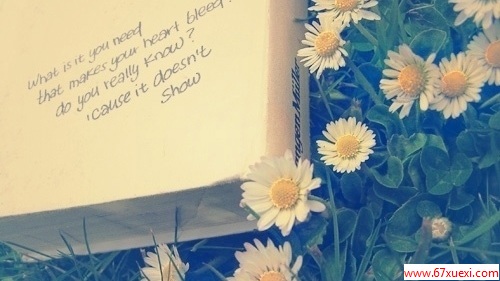 what is it you need
that makes your heart bleed?
do you really know?
'cause it doesn't
show
www.67xuexi.com